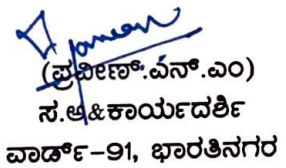 (ಪ್ರವೀಣ್.ಎನ್.ಎಂ)
ಸ.ಅ&ಕಾರ್ಯದರ್ಶಿ
ವಾರ್ಡ್-91, ಭಾರತಿನಗರ